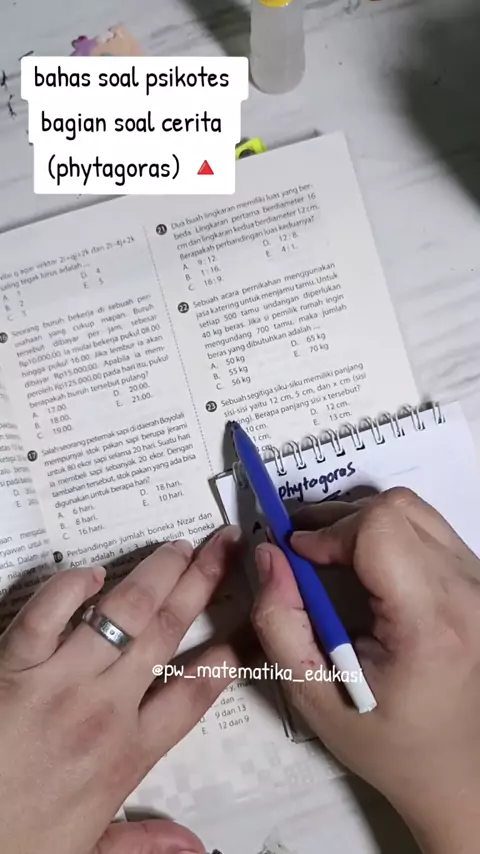 bahas soal psikotes
bagian soal cerita
(phytagoras)
21 Dua buah lingkaran memiliki luas yang ber-
beda. Lingkaran pertama berdiameter 16
cm dan lingkaran kedua berdiameter 12 cm.
Berapakah perbandingan luas keduanya?
A. 9 : 12. D. 12 : 8.
B. 1 : 16. E. 4 : 1.
C. 16 : 9.
22 Sebuah acara pernikahan menggunakan
jasa katering untuk menjamu tamu. Untuk
setiap 500 tamu undangan diperlukan
40 kg beras. Jika si pemilik rumah ingin
mengundang 700 tamu, maka jumlah
beras yang dibutuhkan adalah ....
A. 50 kg D. 65 kg
B. 55 kg E. 70 kg
C. 56 kg
23 Sebuah segitiga siku-siku memiliki panjang
sisi-sisi yaitu 12 cm, 5 cm, dan x cm (sisi
Berapa panjang sisi x tersebut?
10 cm. D. 12 cm.
1 cm. E. 13 cm.
phytagoras
D. 4
E. 5
16 Seorang buruh bekerja di sebuah per-
usahaan yang cukup mapan. Buruh
tersebut dibayar per jam, sebesar
Rp10.000,00. Ia mulai bekerja pukul 08.00
hingga pukul 16.00. Jika lembur ia akan
dibayar Rp15.000,00. Apabila ia mem-
peroleh Rp125.000,00 pada hari itu, pukul
berapakah buruh tersebut pulang?
A. 17.00. D. 20.00.
B. 18.00. E. 21.00.
C. 19.00.
17 Salah seorang peternak sapi di daerah Boyolali
mempunyai stok pakan sapi berupa jerami
untuk 80 ekor sapi selama 20 hari. Suatu hari
ia membeli sapi sebanyak 20 ekor. Dengan
tambahan tersebut, stok pakan yang ada bisa
digunakan untuk berapa hari?
A. 6 hari. D. 18 hari.
B. 8 hari. E. 10 hari.
C. 16 hari.
18 Perbandingan jumlah boneka Nizar dan
April adalah 4 : 3. Jika selisih boneka
@pw_matematika_edukasi
dan ...
D. 9 dan 13
E. 12 dan 9